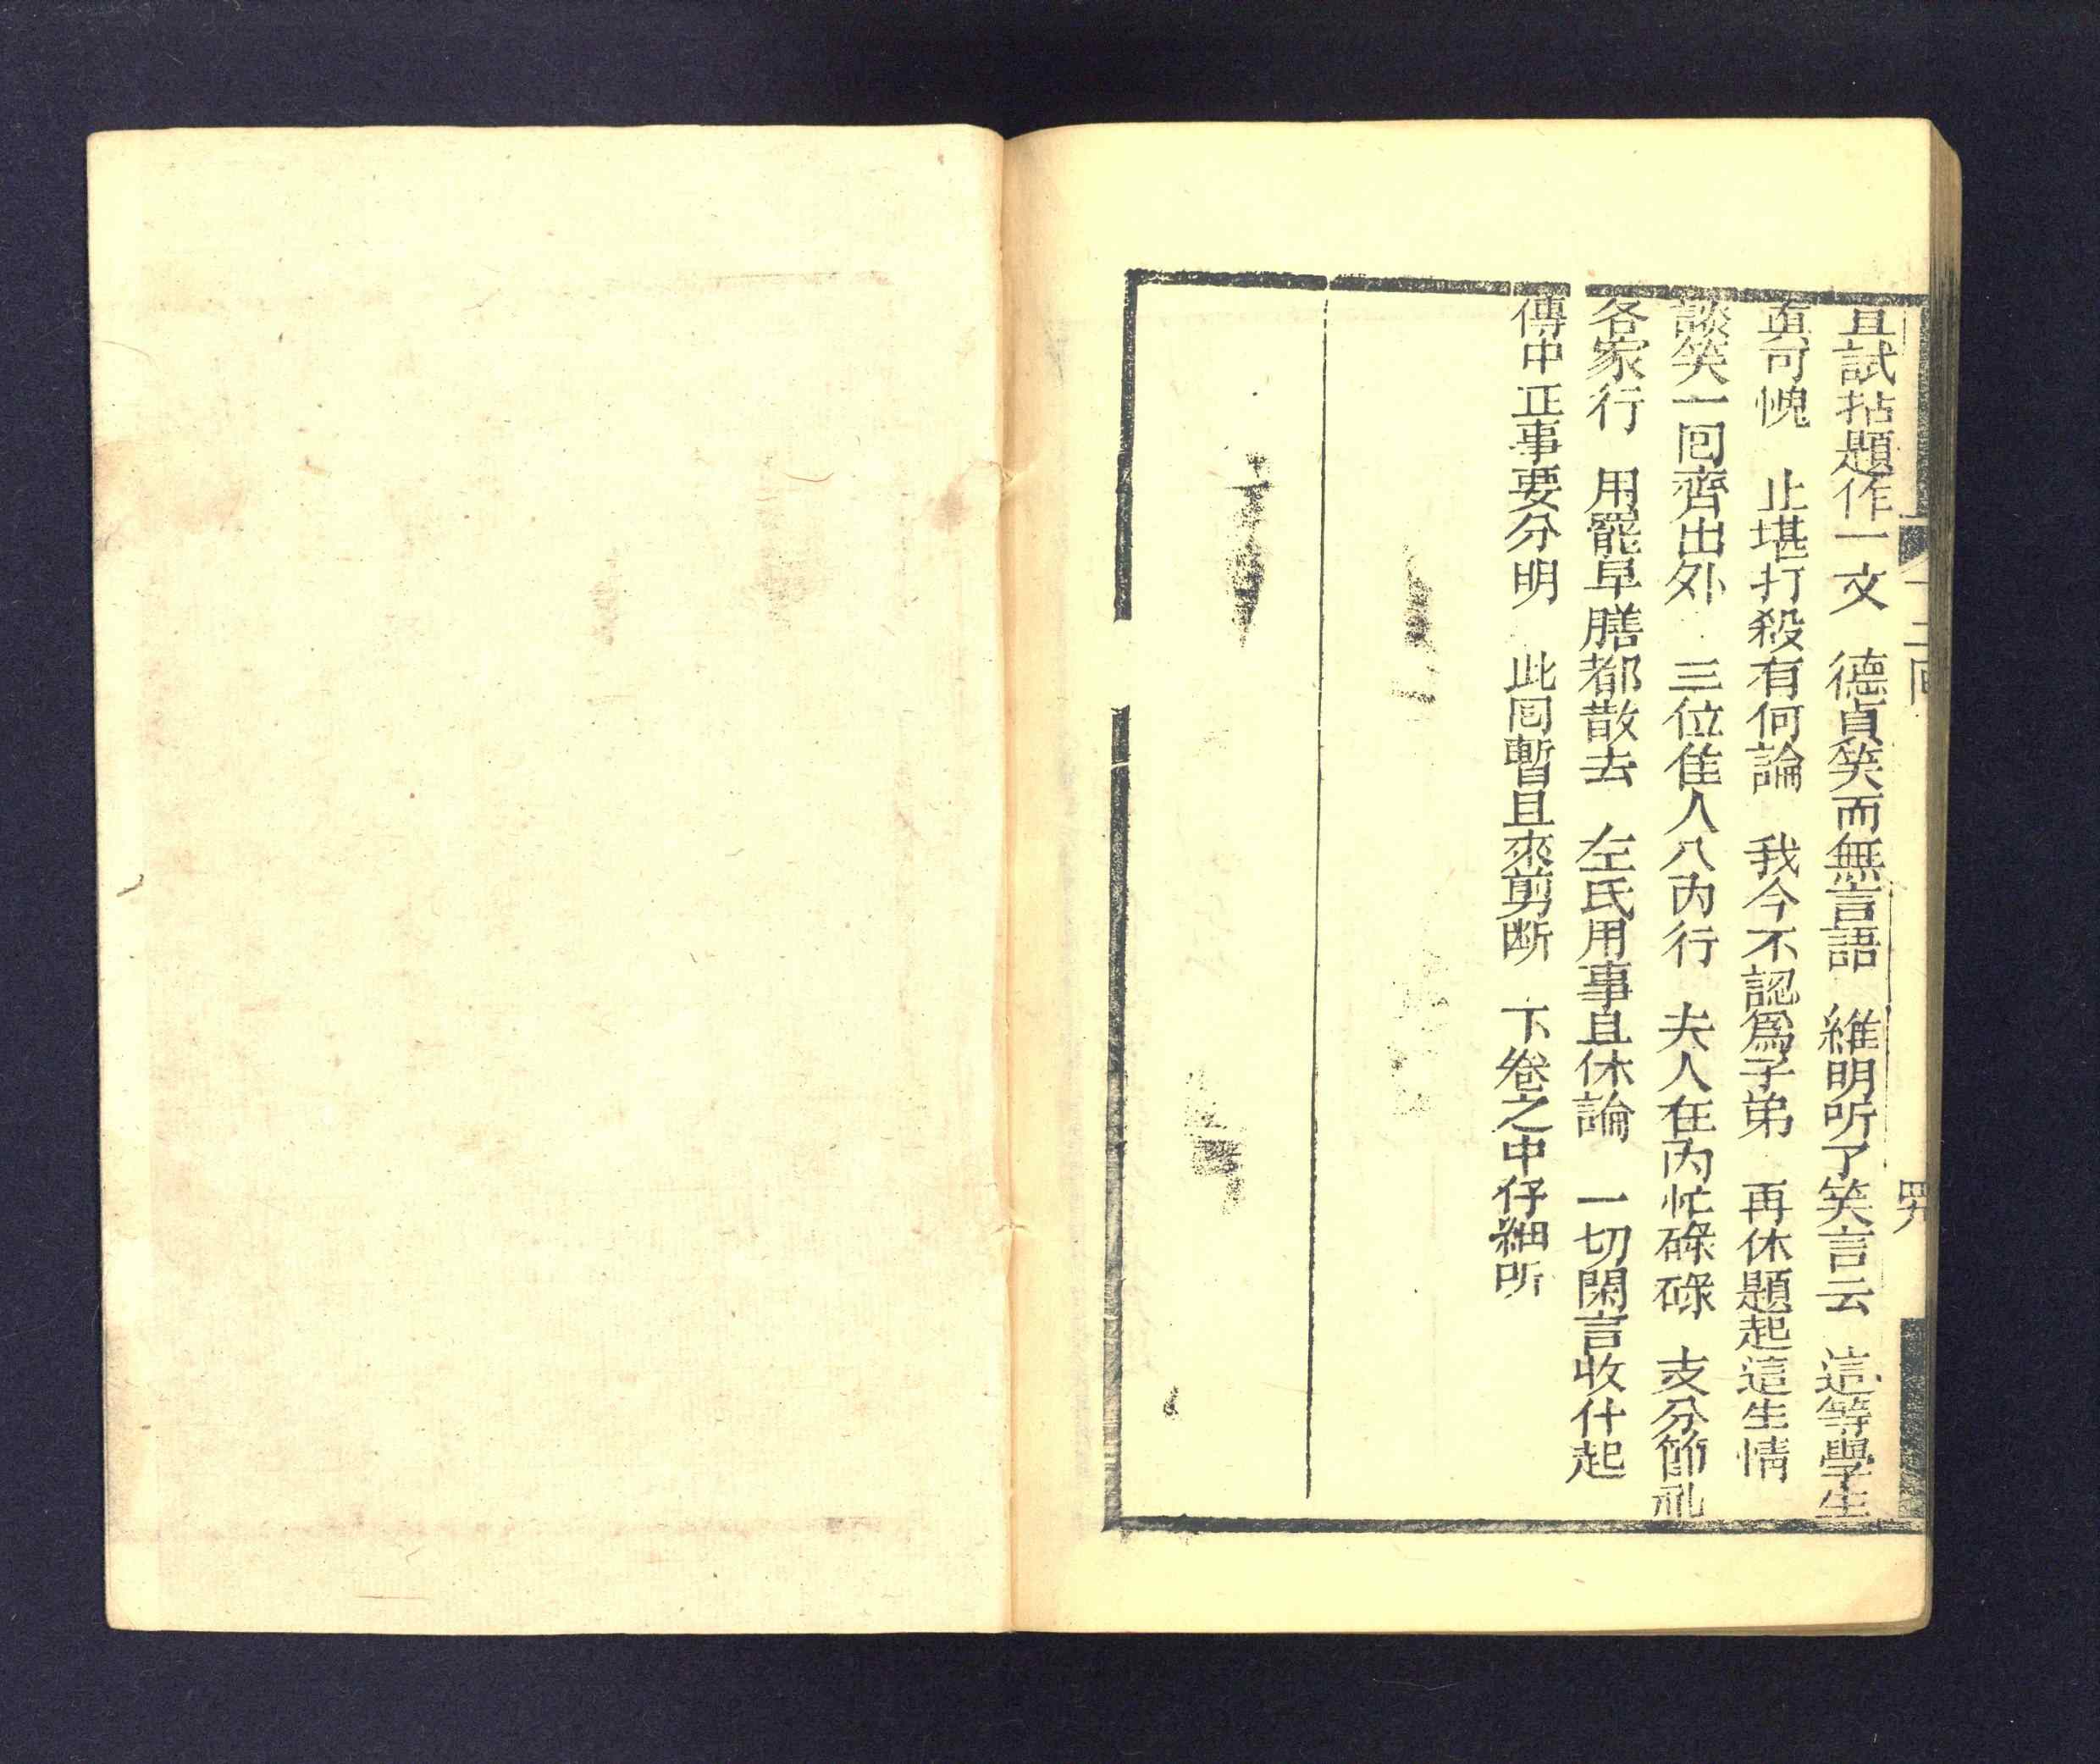 且試拈題作一文　德貞笑而無言語　維明听了笑言云　這等學生
真可愧　止堪打殺有何論　我今不認爲子弟　再休題起這生情
談笑一囘齊出外　三位佳人八内行　夫人在内忙碌碌　支分節礼
各家行　用罷早膳都散去　左氏用事且休論　一切閑言收什起
傳中正事要分明　此囘暫且來剪断　下卷之中仔細听